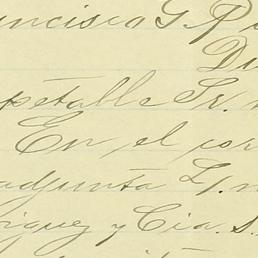 uncisco G. R
D
spetable Sr.
En el cor
adjunta L/.
riguez y Cia. S.